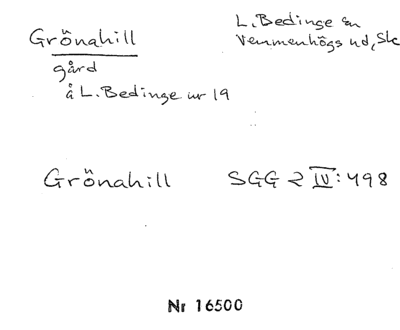 Grönahill
L. Bedinge sn
Vemmenhögs hd, Sk
gård
å L. Bedinge nr 19
Grönahill SGG 2 IV: 498
Nr 16500